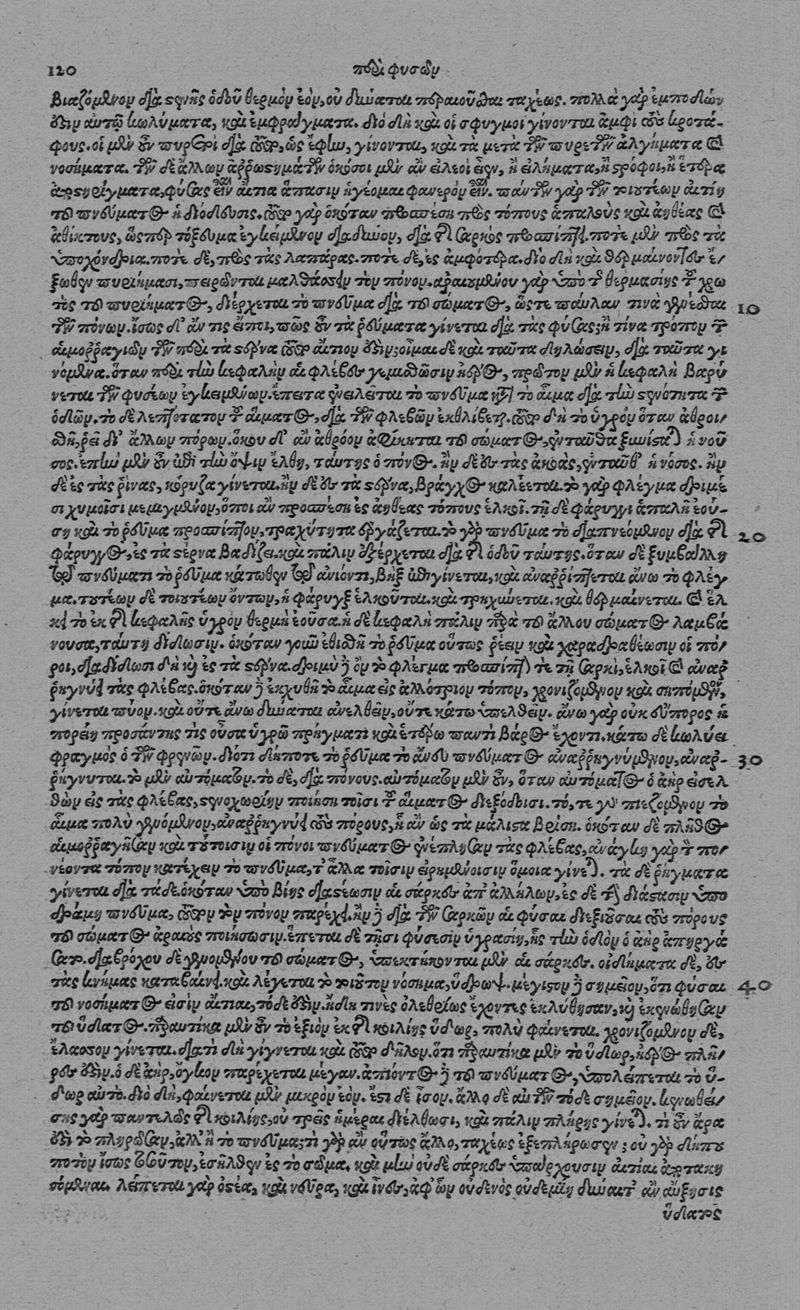 120 περὶ φυσῶν
βιαζόμενον διὰ στενῆς ὁδοῦ θερμὸν ἐὸν, οὐ δύναται περαιοῦσθαι ταχέως. πολλὰ γὰρ ἐμποδὼν
ἐστιν αὐτῷ κωλύματα, καὶ ἐμφράγματα. διὸ δὴ καὶ οἱ σφυγμοὶ γίνονται ἀμφὶ τοὺς κροτά-
φους. οἱ μὲν οὖν πυρετοὶ διὰ τοῦτο, ὡς ἔφην, γίνονται, καὶ τὰ μετὰ τῶν πυρετῶν ἀλγήματα καὶ
νοσήματα. τῶν δὲ ἄλλων ἀῤῥωστημάτων ὁκόσοι μὲν ἂν εἰλεοὶ ἔωσιν, ἢ εἰλήματα, ἢ στρόφοι, ἢ ἕτερα
ἀποστηρίγματα, φύσας εἶναι αἰτία ἅπασιν ἡγέομαι φανερὸν εἶναι. πάντων γὰρ τῶν τοιουτέων αἰτίη
τοῦ πνεύματος ἡ διόδευσις. τοῦτο γὰρ ὁκόταν προσπέσῃ πρὸς τόπους ἁπαλοὺς καὶ ἀηθέας καὶ
ἀθίκτους, ὥσπερ τόξευμα ἐγκείμενον διαδύνον, διὰ τῆς σαρκὸς προσπίπτει. ποτὲ μὲν πρὸς τὰ
ὑποχόνδρια. ποτὲ δὲ, πρὸς τὰς λαπάρας. ποτὲ δὲ, ἐς ἀμφότερα. διὸ δὴ καὶ θερμαίνοντες ἔ-
ξωθεν πυριήμασι, πειρῶνται μαλθάσσειν τὸν πόνον. ἀραιουμένου γὰρ ὑπὸ τῆς θερμασίης τοῦ χρω
τὸς τοῦ πυριήματος, διέρχεται τὸ πνεῦμα διὰ τοῦ σώματος, ὥστε παῦλαν τινὰ γενέσθαι 10
τῶν πόνων. ἴσως δ' ἄν τις εἴποι, πῶς οὖν τὰ ῥεύματα γίνεται διὰ τὰς φύσας; ἢ τίνα τρόπον τῶν
αἱμοῤῥαγιῶν τῶν περὶ τὰ στέρνα τοῦτο αἴτιον ἐστιν; οἶμαι δὲ καὶ ταῦτα δηλώσειν, διὰ ταῦτα γι
νόμενα. ὅταν περὶ τὴν κεφαλὴν αἱ φλέβες γεμισθῶσιν ἠέρος, πρῶτον μὲν ἡ κεφαλὴ βαρύ
νεται τῶν φυσέων ἐγκειμένων. ἔπειτα ἐνειλεῖται τὸ πνεῦμα καὶ τὸ αἷμα διὰ τὴν στενότητα τῶν
ὁδῶν. τὸ δὲ λεπτότατον τοῦ αἵματος, διὰ τῶν φλεβῶν ἐκθλίβεται. τοῦτο δὴ τὸ ὑγρὸν ὅταν ἀθροι-
σθῇ, ῥεῖ δι' ἄλλων πόρων. ὅκου δ' ἂν ἀθρόον ἀφίκηται τοῦ σώματος, ἐνταῦθα ξυνίσταται ἡ νοῦ
σος. ἐπὴν μὲν οὖν ἐπὶ τὴν ὄψιν ἔλθῃ, ταύτης ὁ πόνος. ἢν δὲ ἐς τὰς ἀκοὰς, ἐνταῦθ' ἡ νόσος. ἢν
δὲ ἐς τὰς ῥίνας, κόρυζα γίνεται. ἢν δὲ ἐς τὰ στέρνα, βράγχος καλέεται. τὸ γὰρ φλέγμα δριμέ
σι χυμοῖσι μεμιγμένον, ὅποι ἂν προσπέσῃ ἐς ἀηθέας τόπους ἑλκοῖ. τῇ δὲ φάρυγγι ἁπαλῇ ἐού-
σῃ καὶ τὸ ῥεῦμα προσπίπτον, τραχύτητα ἐργάζεται. τὸ γὰρ πνεῦμα τὸ διαπνεόμενον διὰ τῆς 20
φάρυγγος, ἐς τὰ στέρνα βαδίζει. καὶ πάλιν ἐξέρχεται διὰ τῆς ὁδοῦ ταύτης. ὅταν δὲ ξυμβάλλῃ
τῷ πνεύματι τὸ ῥεῦμα κάτωθεν τῷ ἀνιόντι, βὴξ ἐπιγίνεται, καὶ ἀναῤῥίπτεται ἄνω τὸ φλέγ-
μα. τουτέων δὲ τοιουτέων ὄντων, ἡ φάρυγξ ἑλκοῦται. καὶ τρηχύνεται. καὶ θερμαίνεται. καὶ ἕλ
κει τὸ ἐκ τῆς κεφαλῆς ὑγρὸν θερμὴ ἐοῦσα. ἡ δὲ κεφαλὴ πάλιν παρὰ τοῦ ἄλλου σώματος λαμβά
νουσα, ταύτῃ δίδωσιν. ὁκόταν γοῦν ἐθισθῇ τὸ ῥεῦμα οὕτως ῥέειν καὶ χαραδρωθέωσιν οἱ πό-
ροι, διαδίδωσι δὴ καὶ ἐς τὰ στέρνα. δριμὺ δὲ ὂν τὸ φλέγμα προσπίπτει τε τῇ σαρκὶ, ἑλκοῖ καὶ ἀναῤ
ῥηγνύει τὰς φλέβας. ὁκόταν δὲ ἐκχυθῇ τὸ αἷμα εἰς ἀλλότριον τόπον, χρονιζόμενον καὶ σηπόμενον,
γίνεται πύον. καὶ οὔτε ἄνω δύναται ἀνελθεῖν, οὔτε κάτω ὑπελθεῖν. ἄνω γὰρ οὐκ εὔπορος ἡ
πορείη προσάντης τις οὖσα ὑγρῷ πρήγματι καὶ ἑτέρῳ παντὶ βάρος ἔχοντι. κάτω δὲ κωλύει
φραγμὸς ὁ τῶν φρενῶν. διότι δήποτε τὸ ῥεῦμα τὸ ἄνευ πνεύματος ἀναῤῥηγνύμενον, ἀναῤ- 30
ῥήγνυται. τὸ μὲν αὐτόματον. τὸ δὲ, διὰ πόνους. αὐτόματον μὲν οὖν, ὅταν αὐτόματος ὁ ἀὴρ εἰσελ
θὼν εἰς τὰς φλέβας, στενοχωρίην ποιήσῃ τοῖσι τοῦ αἵματος διεξόδοισι. τό, τε γὰρ πιεζόμενον τὸ
αἷμα πολὺ γενόμενον, ἀναῤῥηγνύει τοὺς πόρους, ᾗ ἂν ὡς τὰ μάλιστα βρίσῃ. ὁκόταν δὲ πλῆθος
αἱμοῤῥαγῆσαν καὶ τούτοισιν οἱ πόνοι πνεύματος ἐνέπλησαν τὰς φλέβας, ἀνάγκη γὰρ τὸν πο-
νέοντα τόπον κατέχειν τὸ πνεῦμα, τ' ἄλλα τοῖσιν εἰρημένοισιν ὅμοια γίνεται. τὰ δὲ ῥήγματα
γίνεται διὰ τάδε. ὁκόταν ὑπὸ βίης διαστέωσιν αἱ σάρκες ἀπ' ἀλλήλων, ἐς δὲ τὴν διάστασιν ὑπο
δράμῃ πνεῦμα, τοῦτο τὸν πόνον παρέχει. ἢν δὲ διὰ τῶν σαρκῶν αἱ φῦσαι διεξιοῦσαι τοὺς πόρους
τοῦ σώματος ἀραιοὺς ποιήσωσιν. ἕπεται δὲ τῇσι φύσεσιν ὑγρασίη, ἧς τὴν ὁδὸν ὁ ἀὴρ ἀπηργά
σατο. διαβρόχου δὲ γενομένου τοῦ σώματος, ὑπεκτήκονται μὲν αἱ σάρκες. οἰδήματα δὲ, ἐς
τὰς κνήμας καταβαίνει. καὶ λέγεται τὸ τοιοῦτον νόσημα, ὕδρωψ. μέγιστον δὲ σημεῖον, ὅτι φῦσαι 40
τοῦ νοσήματος εἰσὶν αἴτιαι, τόδε ἐστιν. ἤδη τινὲς ὀλεθρίως ἔχοντες ἐκλύθησαν, καὶ ἐκενώθησαν
τοῦ ὕδατος. παραυτίκα μὲν οὖν τὸ ἐξιὸν ἐκ τῆς κοιλίης ὕδωρ, πολὺ φαίνεται. χρονιζόμενον δὲ,
ἔλασσον γίνεται. διατὶ δὴ γίγνεται καὶ τοῦτο δῆλον. ὅτι παραυτίκα μὲν τὸ ὕδωρ, ἠέρος πλῆ-
ρες ἐστιν. ὁ δὲ ἀὴρ, ὄγκον παρέχεται μέγαν. ἀπιόντος δὲ τοῦ πνεύματος, ὑπολείπεται τὸ ὕ-
δωρ αὐτό. διὸ δὴ, φαίνεται μὲν μικρὸν ἐὸν. ἔτι δὲ ἴσον. ἄλλο δὲ αὐτῶν τόδε σημεῖον. κενωθεί-
σης γὰρ παντελῶς τῆς κοιλίης, οὐ τρεῖς ἡμέραι διέλθωσι, καὶ πάλιν πλήρης γίνεται. τί οὖν ἄρα
ἐστὶ τὸ πληρῶσαν, ἀλλ' ἢ τὸ πνεῦμα; τί γὰρ ἂν οὕτως ἄλλο, ταχέως ἐξεπλήρωσεν; οὐ γὰρ δήπου
ποτὸν ἴσως τοσοῦτον, ἐσῆλθεν ἐς τὸ σῶμα. καὶ μὴν οὐδὲ σάρκες ὑπάρχουσιν αἴτιαι ἀποτακη
σόμεναι. λείπεται γὰρ ὀστέα, καὶ νεῦρα, καὶ ἶνες, ἀφ' ὧν οὐδενὸς οὐδεμίη δύναιτ' ἂν αὔξησις
ὕδατος